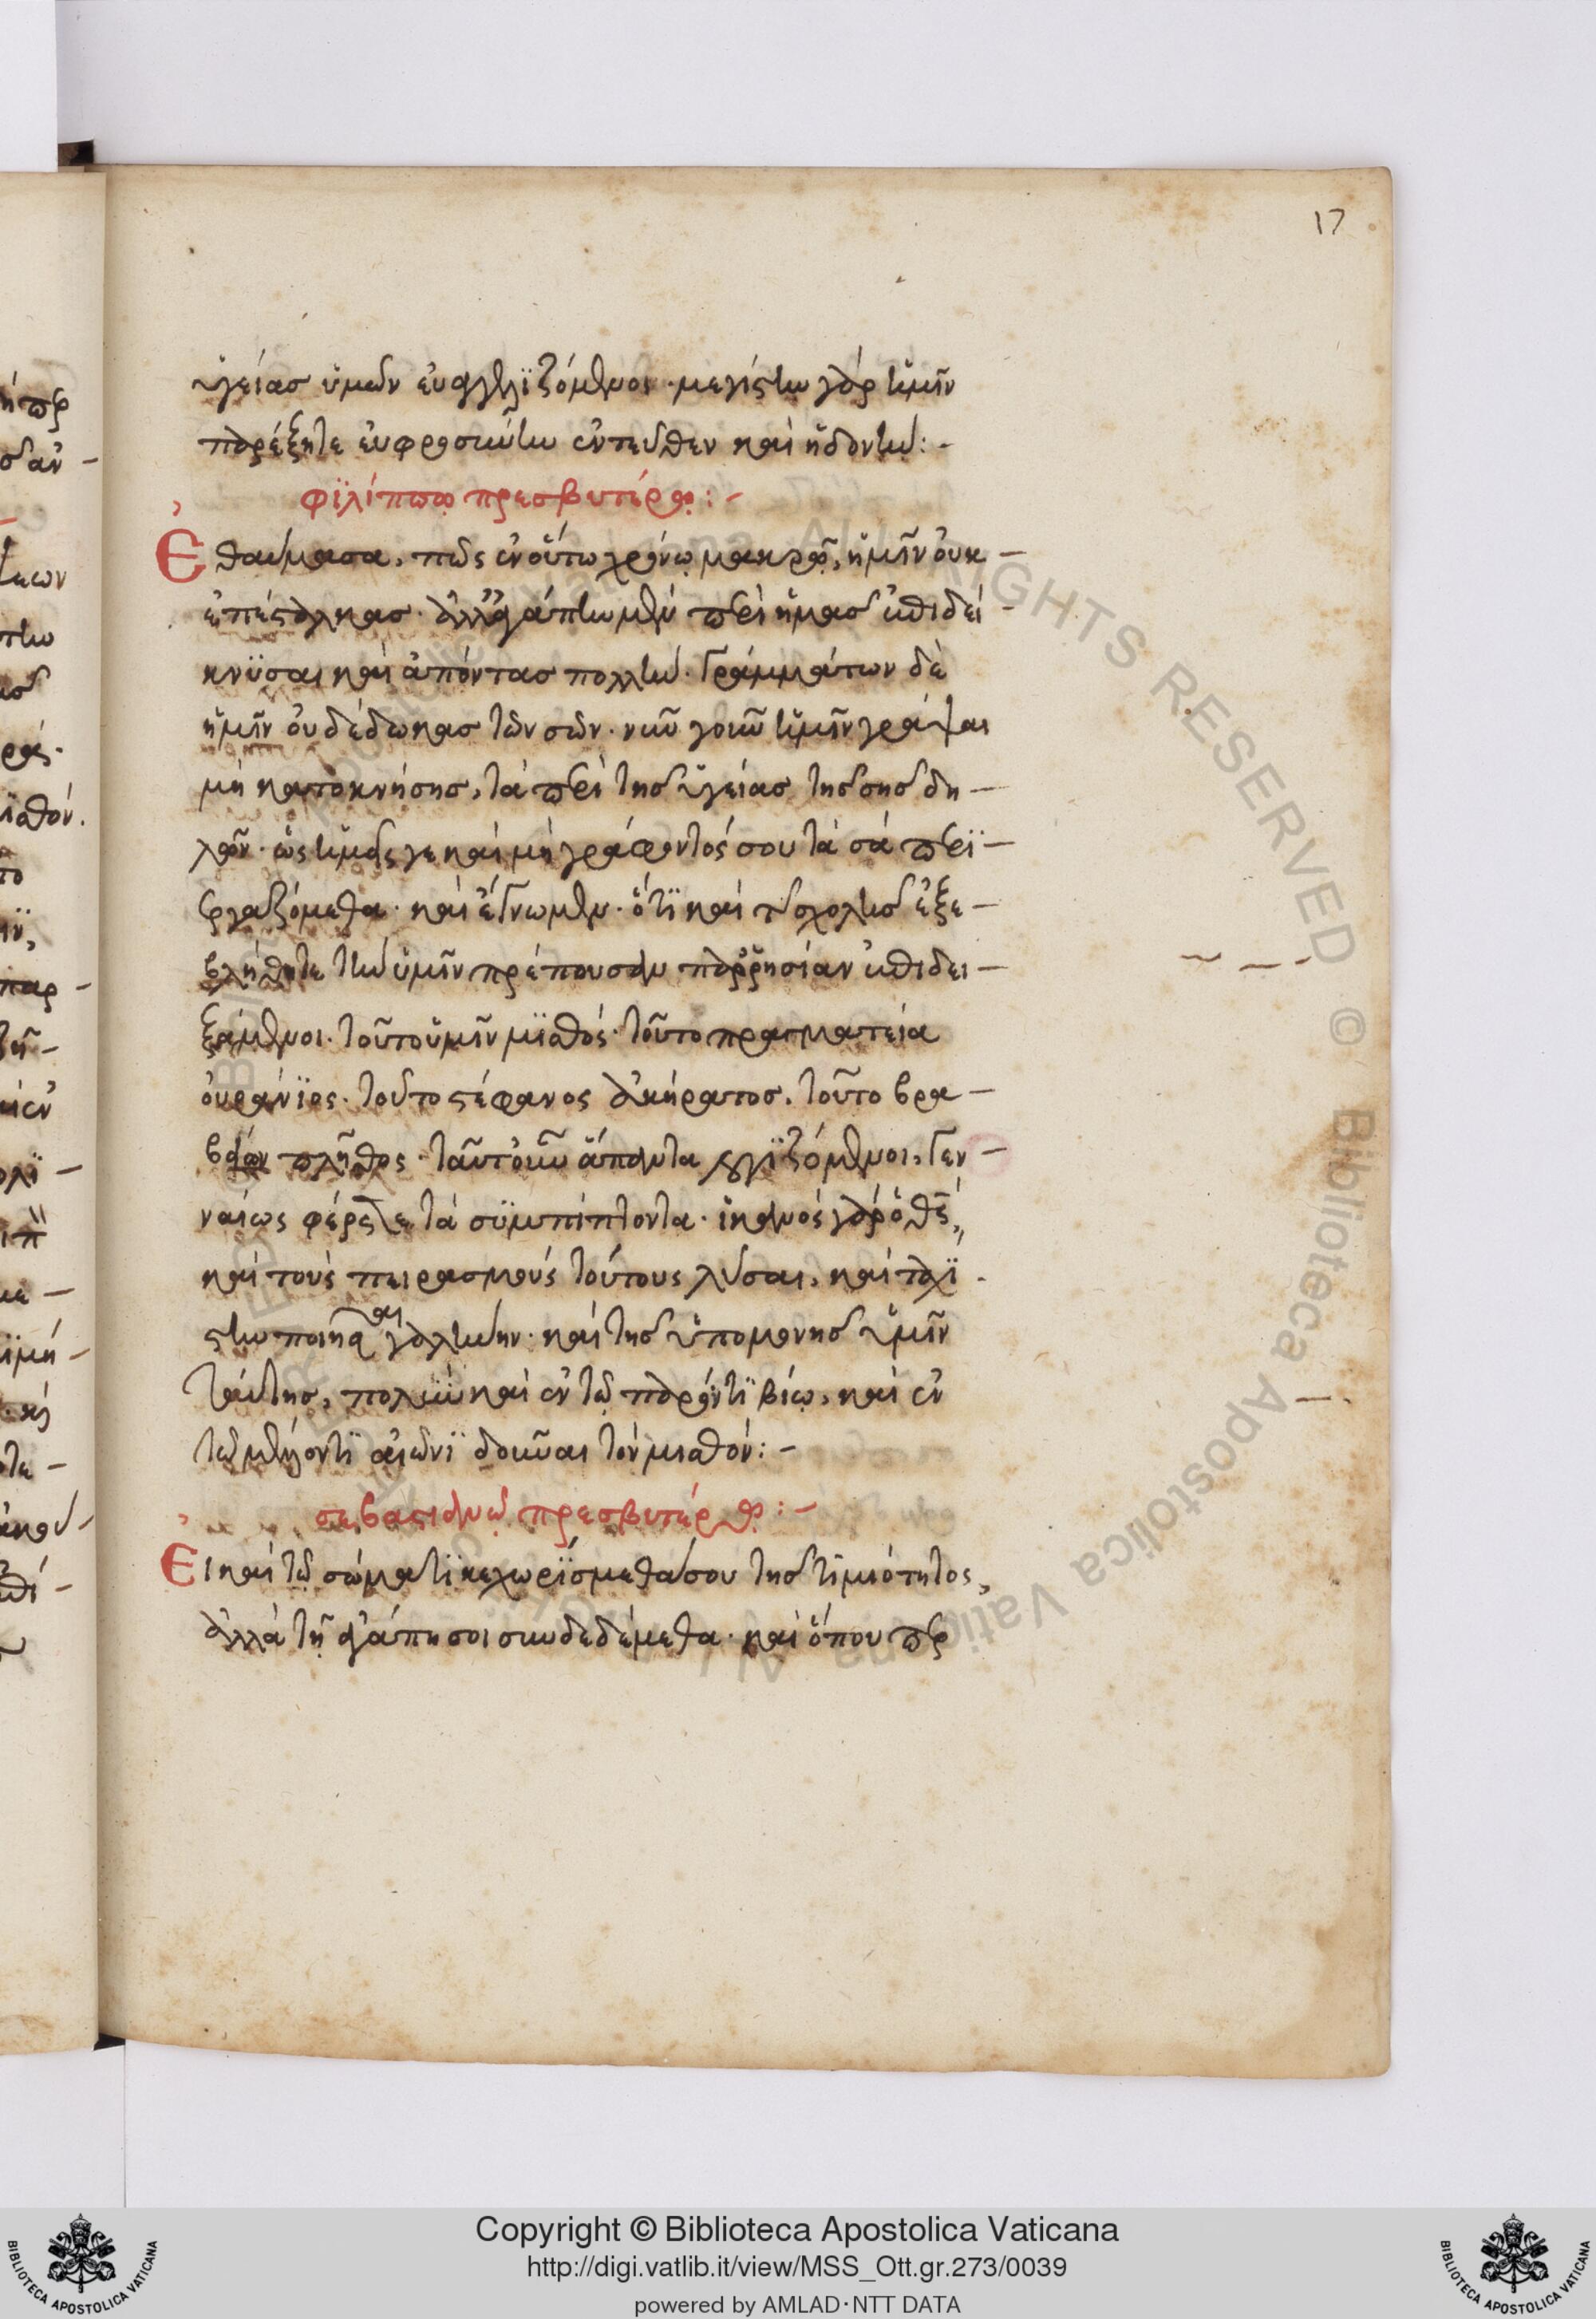 17
ὑγείας ὑμῶν εὐαγγελϊζόμενοι · μεγίστην γὰρ ἡμῖν
παρέξητε εὐφροσύνην ἐντεῦθεν καὶ ἡδονὴν : -
φϊλίππω πρεσβυτέρω : -
Ἐθαύμασα, πῶς ἐν οὕτω χρόνῳ μακρῷ, ἡμῖν οὐκ -
ἐπέσταλκας · ἀλλ' ἀγάπην μὲν περὶ ἡμᾶς ἐπιδεί -
κνϋσαι καὶ ἀπόντας πολλήν · γράμμάτων δὲ
ἡμῖν οὐ δέδωκας τῶν σῶν · νῦν γοῦν ἡμῖν γράψαι
μὴ κατοκνήσης, τὰ περὶ τῆς ὑγείας τῆς σῆς δη -
λῶν · ὡς ἡμεῖς γε καὶ μὴ γράφοντός σου τὰ σὰ περϊ -
εργαζόμεθα · καὶ ἔγνωμεν · ὅτϊ καὶ τῆς σχολῆς ἐξε -
βλήθητε τὴν ὑμῖν πρέπουσαν παρρησίαν ἐπιδει -
ξάμενοι · τοῦτο ὑμῖν μϊσθός · τοῦτο πραγματεία
οὐράνϊος · τοῦτο στέφανος ἀκήρατος. τοῦτο βρα -
βείων πλῆθος · ταῦτ' οὖν ἅπαντα λογϊζόμενοι, γεν -
ναίως φέρετε τὰ συμπίπτοντα · ἱκανὸς γὰρ ὁ θεὸς,
καὶ τοὺς πειρασμοὺς τούτους λῦσαι, καὶ ταχϊ -
στην ποιῆσαι γαλήνην · καὶ τῆς ὑπομονῆς ὑμῖν
ταύτης, πολὺν καὶ ἐν τῷ παρόντϊ βίῳ, καὶ ἐν
τῷ μέλλοντϊ αἰῶνϊ δοῦναι τὸν μισθόν : -
σεβαστιανῷ πρεσβυτέρω : -
Εἰ καὶ τῷ σώματϊ κεχωρϊσμεθα σου τῆς τϊμιότητος,
ἀλλὰ τῇ ἀγάπη σοι συνδεδέμεθα · καὶ ὅπου περ
Copyright © Biblioteca Apostolica Vaticana
http://digi.vatlib.it/view/MSS_Ott.gr.273/0039
powered by AMLAD·NTT DATA